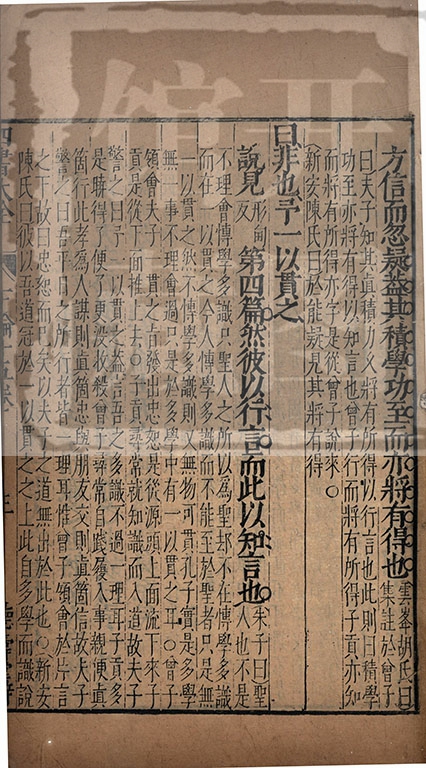 方信而忽疑蓋其積學功至而亦將有得也雲峯胡氏曰集註於曾子
曰夫子知其真積力乆將有所得以行言也此則曰積學
功至亦將有得以知言也曾子行而將有所得子貢亦知
而將有所得亦字是從曾子說來○
新安陳氏曰於能疑見其將有得
曰非也予一以貫之
說見形甸反第四篇然彼以行言而此以知言也朱子曰聖人也不是
不理會博學多識只聖人之所以爲聖却不在博學多識
而在一以貫之今人博學多識而不能至於聖者只是無
一以貫之然不博學多識則又無物可貫孔子實是多學
無一事不理會過只是於多學中有一以貫之耳○曾子
領會夫子一貫之旨發出忠恕是從源頭上面流下來子
貢是從下面推上去○子貢尋常就知識而入道故夫子
警之曰予一以貫之蓋言吾之多識不過一理耳子貢多
是聴得了便了更没收殺曾子尋常自踐履入事親便真
箇行此孝爲人謀則真箇忠與朋友交則真箇信故夫子
警之曰吾平日之所行者皆一理耳惟曾子領會於片言
之下故曰忠恕而已矣以夫子之道無出於此也○新安
陳氏曰彼以吾道冠於一以貫之之上此自多學而識說